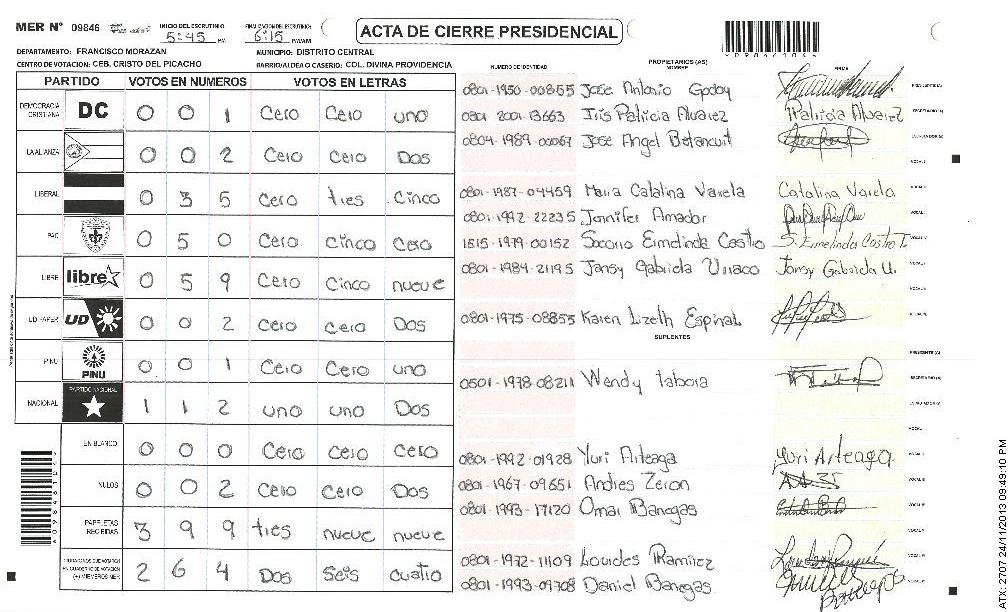 MER N° 09846 INICIO DEL ESCRUTINIO 5:45 PM FINALIZACION DEL ESCRUTINIO 6:15 PM/AM
ACTA DE CIERRE PRESIDENCIAL
DEPARTAMENTO: FRANCISCO MORAZAN MUNICIPIO: DISTRITO CENTRAL
CENTRO DE VOTACION: CEB. CRISTO DEL PICACHO BARRIO/ALDEA O CASERIO: COL. DIVINA PROVIDENCIA
PARTIDO VOTOS EN NUMEROS VOTOS EN LETRAS
DEMOCRACIA CRISTIANA DC 0 0 1 Cero Cero uno
LA ALIANZA 0 0 2 Cero Cero Dos
LIBERAL 0 3 5 Cero tres Cinco
PAC 0 5 0 Cero Cinco Cero
LIBRE libre 0 5 9 Cero Cinco nueve
UD FAPER UD 0 0 2 Cero Cero Dos
PINU PINU 0 0 1 Cero Cero uno
NACIONAL PARTIDO NACIONAL 1 1 2 uno uno Dos
EN BLANCO 0 0 0 Cero Cero Cero
NULOS 0 0 2 Cero Cero Dos
PAPELETAS RECIBIDAS 3 9 9 tres nueve nueve
(+) MIEMBROS MER 2 6 4 Dos Seis cuatro
NUMERO DE IDENTIDAD PROPIETARIOS (AS) NOMBRE FIRMA
0801-1950-00855 Jose Antonio Godoy
0801 2001 13663 Iris Patricia Alvarez Patricia Alvarez
0804-1989-00067 Jose Angel Betancurt
0801-1987-04459 Maria Catalina Varela Catalina Varela
0801-1992-22235 Jennifer Amador
1515-1979-00152 Socorro Ermelinda Castro S. Ermelinda Castro T.
0801-1984-21195 Jansy Gabriela Urraco Jansy Gabriela U.
0801-1975-08855 Karen Lizeth Espinal
SUPLENTES
0501-1978-08211 Wendy Tabora
0801-1992-01928 Yuri Arteaga Yuri Arteaga.
0801-1967-09651 Andres Zeron
0801-1993-17120 Omar Banegas
0801-1972-11109 Lourdes Ramirez
0801-1993-09708 Daniel Banegas
ATX: 2707 24/11/2013 09:49:10 PM